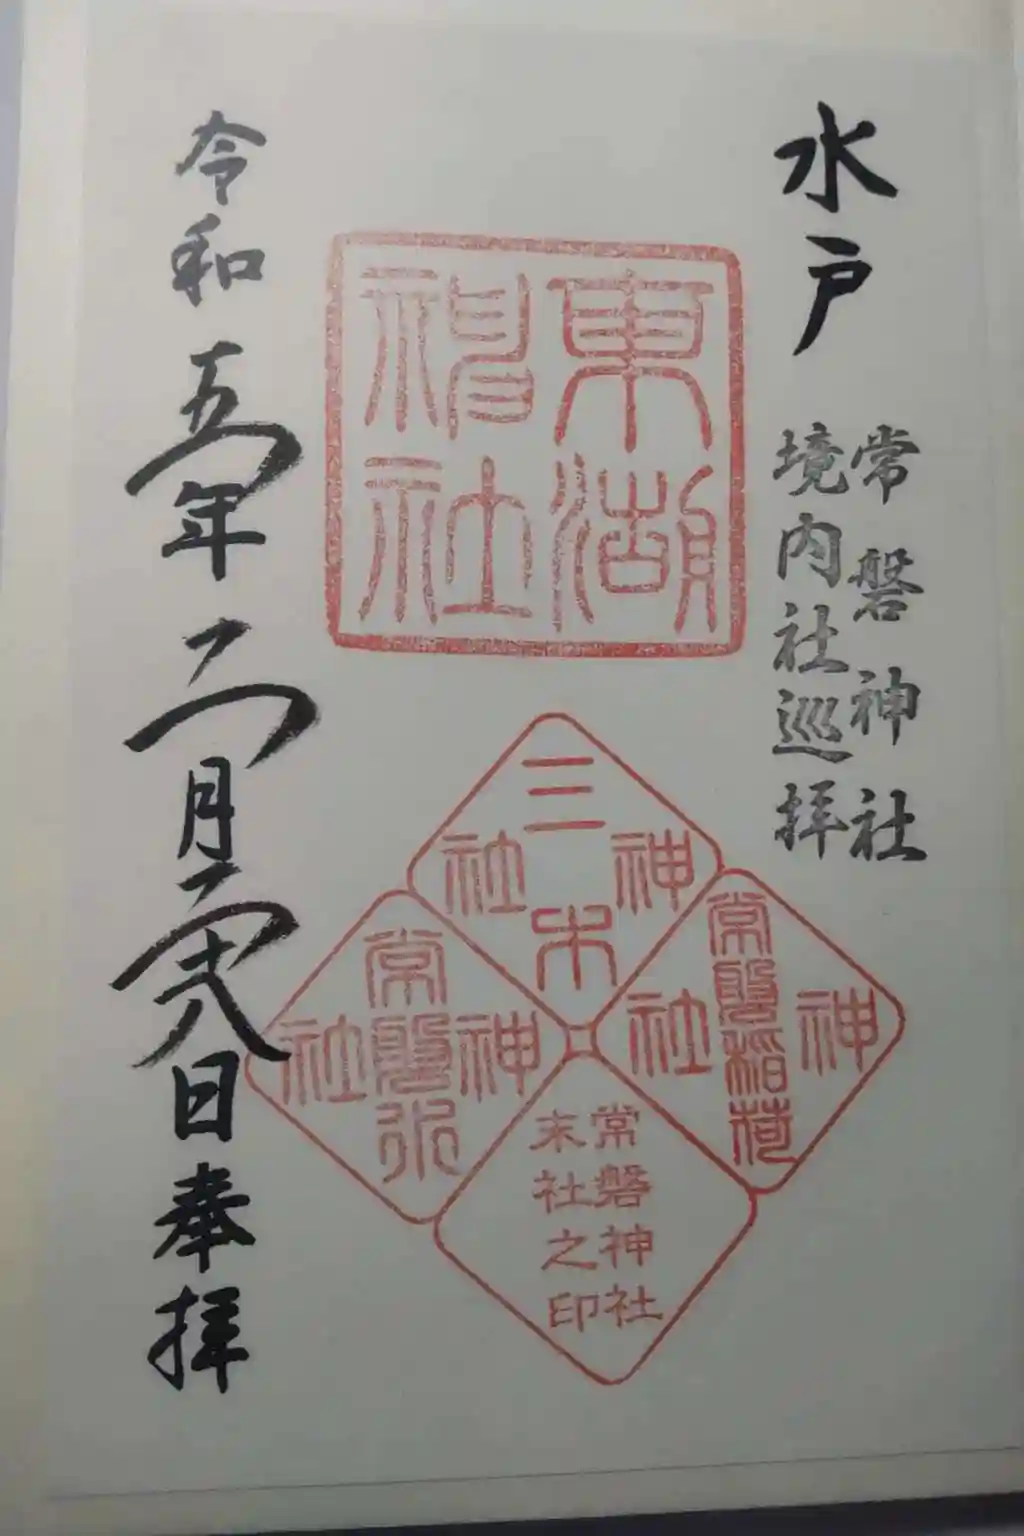 水戸
常磐神社
境内社巡拝
東湖
神社
三木
神社
常磐稲荷
神社
常磐
神社
常磐神社
末社之印
令和五年二月二十八日奉拝